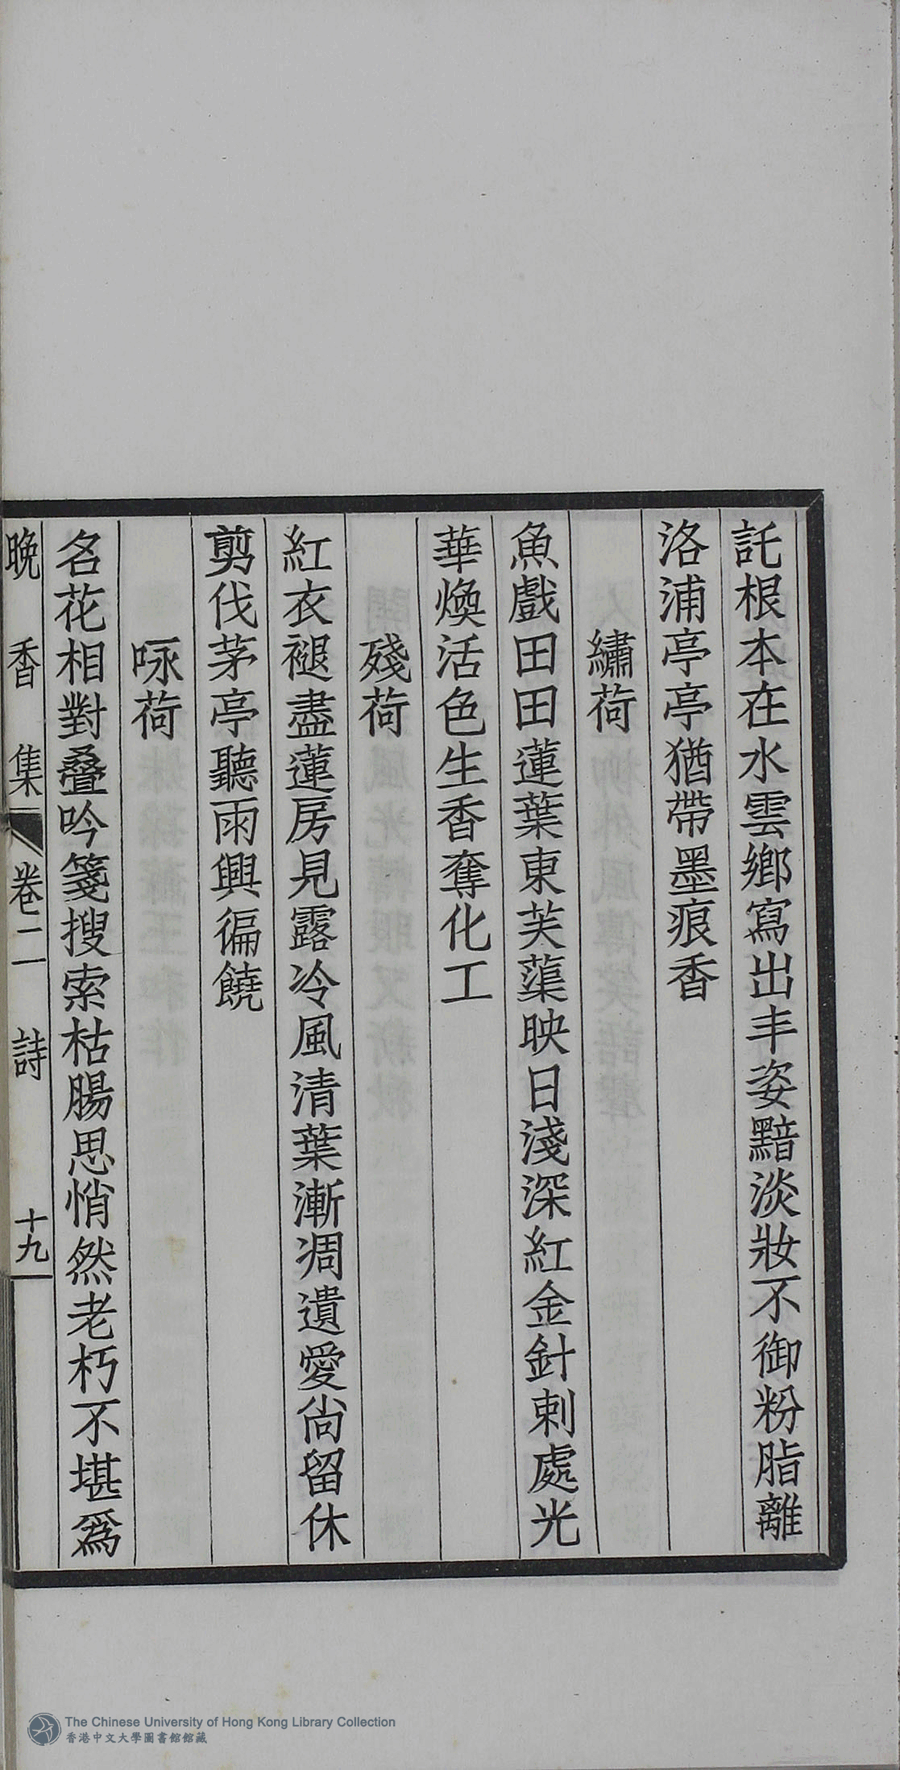 託根本在水雲鄉寫出丰姿黯淡妝不御粉脂離
洛浦亭亭猶帶墨痕香
繡荷
魚戲田田蓮葉東芙蕖映日淺深紅金針刺處光
華煥活色生香奪化工
殘荷
紅衣褪盡蓮房見露冷風清葉漸凋遺愛尚留休
剪伐茅亭聽雨興徧饒
咏荷
名花相對叠吟箋搜索枯腸思悄然老朽不堪爲
晚香集 卷二 詩 十九
The Chinese University of Hong Kong Library Collection
香港中文大學圖書館館藏